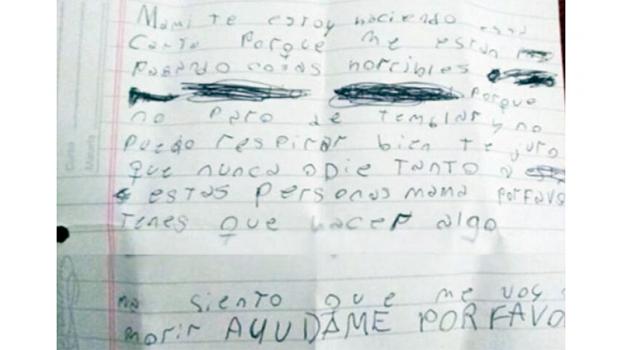 Mami te estoy haciendo esta
Carta Porque me estan
Pasando cosas horribles
Porque
no Paro de temblar y no
Puedo respirar bien te juro
que nunca odie TANTO a
estas Personas mama PORFAVO
Tenes que hacer algo
me siento que me voy a
morir AYUDAME PORFAVO